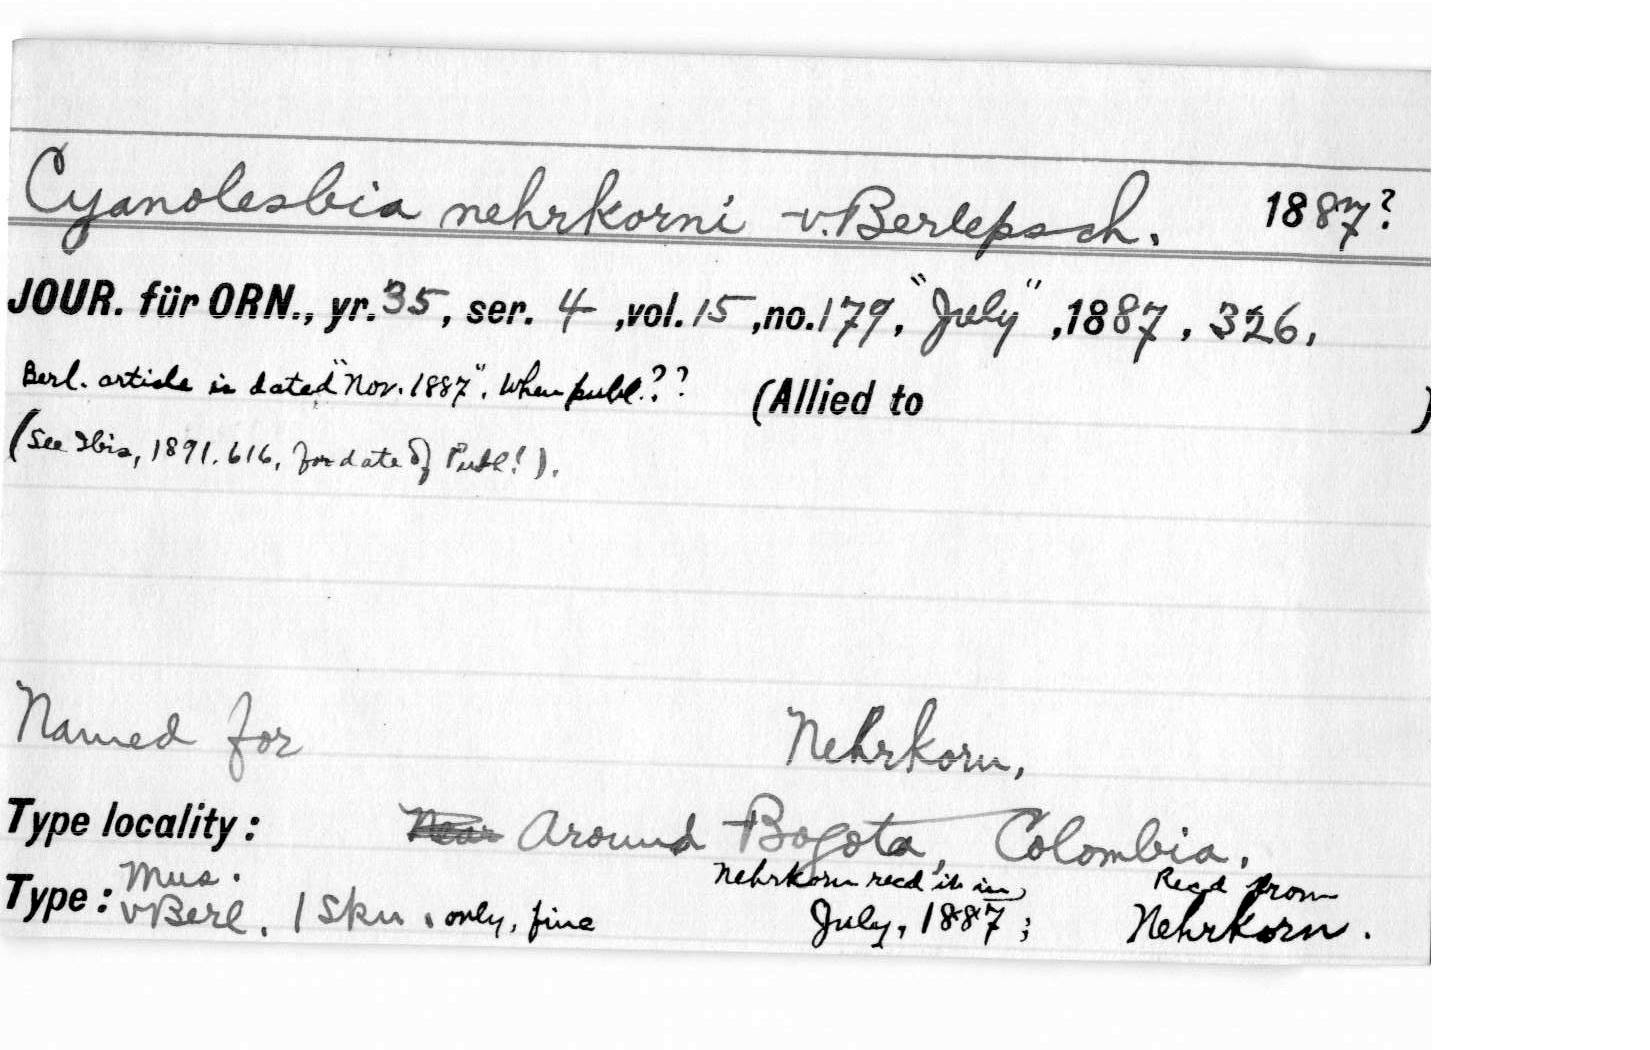 Cyanolesbia nehrkorni v. Berlepsch. 1887?
JOUR. für ORN., yr. 35, ser. 4, vol. 15, no. 179, "July", 1887, 326,
Berl. article is dated "Nov. 1887". When publ.??
(Allied to )
(See Ibis, 1891. 616, for date of Publ!).
Named for Nehrkorn,
Type locality: Near Around Bogota, Colombia.
Type: Mus. vBerl. 1 Skn. only, fine
Nehrkorn recd it in July, 1887;
Recd from Nehrkorn.